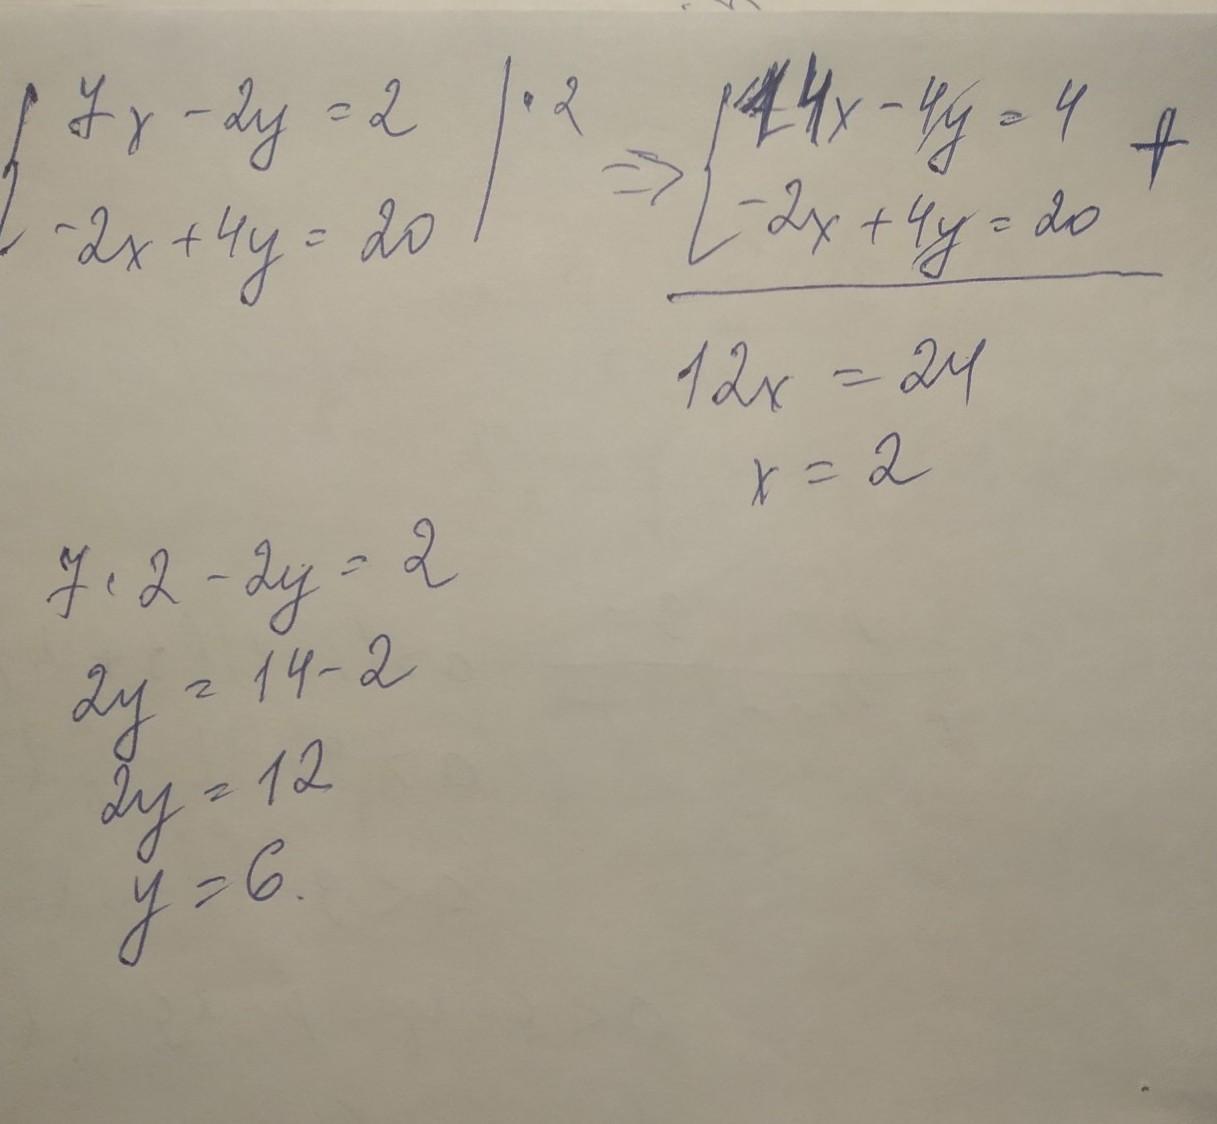 7x - 2y = 2 | · 2 ⇒ 14x - 4y = 4 +
-2x + 4y = 20 -2x + 4y = 20
12x = 24
x = 2
7 · 2 - 2y = 2
2y = 14 - 2
2y = 12
y = 6.